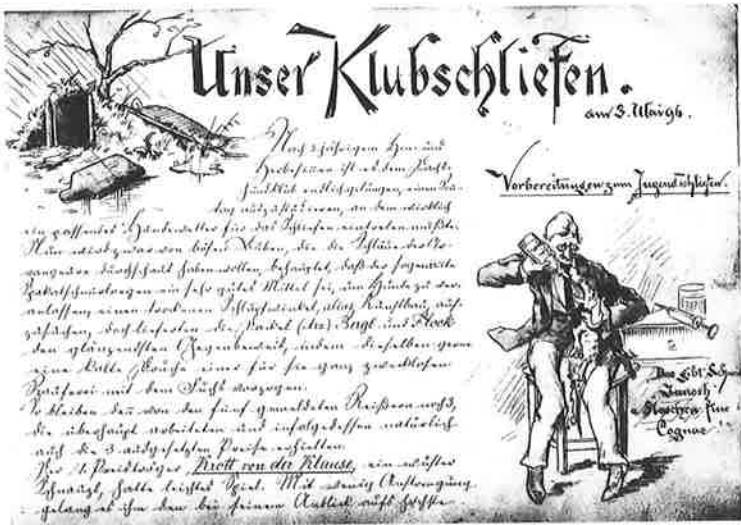 Unser Klubschliefen.
am 3. Mai 96.
Nach 3 jährigem Hin- und
Herbesinnen ist es dem Dachs-
hundklub endlich gelungen, einen Tag
auszustudieren, an dem wirklich
ein passendes Hundewetter für das Schliefen eintreten mußte.
Nun wird zwar von bösen Buben, die die Schläue der
durchschaut haben wollen, behauptet, daß der sogenannte
ein sehr gutes Mittel sei, um Hunde zu ver-
anlassen, einen trockenen Schlupfwinkel, alias Kunstbau, auf-
zusuchen, doch lieferten die Dackel Bergl und Flock
den glänzendsten Gegenbeweis, indem dieselben gerne
eine kalte Douche einer für sie ganz zwecklosen
Rauferei mit dem Fuchs vorzogen.
So bleiben denn von den fünf gemeldeten Reißern noch 3,
die überhaupt arbeiteten und infolgedessen natürlich
auch die 3 ausgesetzten Preise erhielten.
Der 1. Preisträger, Krott von der Klause, ein wüster
Schnauzl, hatte leichtes Spiel. Mit wenig Anstrengung
gelang es ihm den bei seinem Anblick aufs höchste
Vorbereitungen zum Jugendschliefen.
Das gibt
Janosh
a Flascherl fine
Cognac